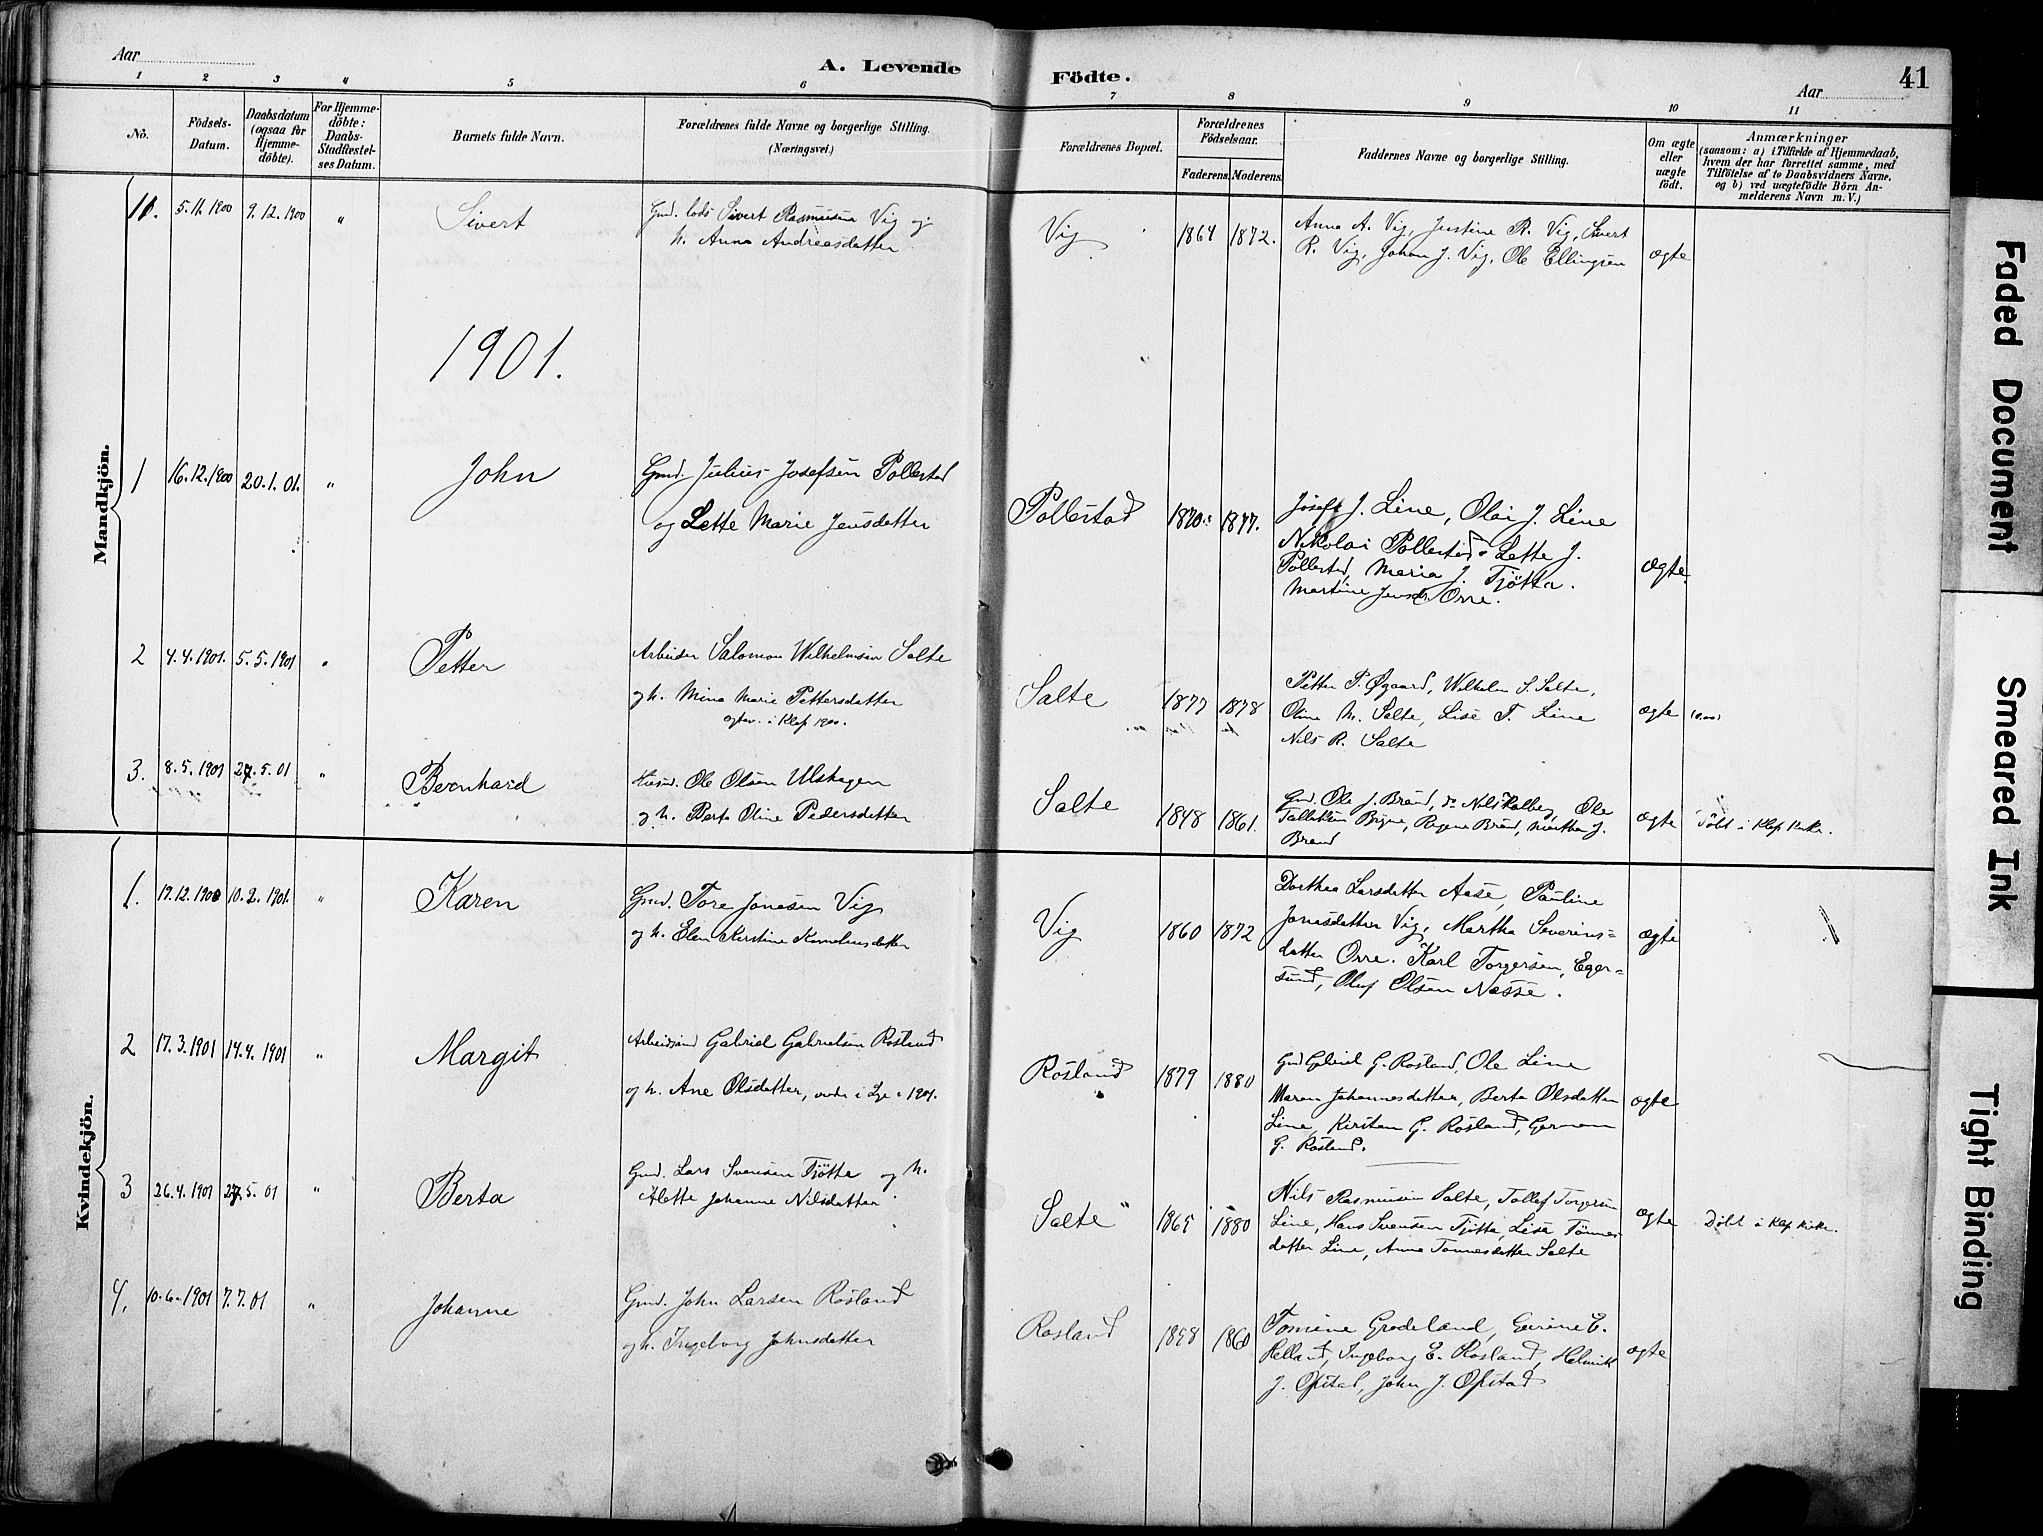 Aar
A. Levende
Födte.
Aar
41
1 2 3 4 5 6 7 8 9 10 11
No.
Födsels-
Datum.
Daabsdatum
(ogsaa for
Hjemme-
döbte).
For Hjemme-
döbte:
Daabs-
Stadfæstel-
ses Datum.
Barnets fulde Navn.
Forældrenes fulde Navne og borgerlige Stilling.
(Næringsvei.)
Forældrenes Bopæl.
Forældrenes
Födselsaar.
Faderens.
Moderens.
Faddernes Navne og borgerlige Stilling.
Om ægte
eller
uægte
födt.
Anmærkninger
(saasom: a) i Tilfælde af Hjemmedaab,
hvem der har forrettet samme, med
Tilföielse af to Daabsvidners Navne,
og b) ved uægtefödte Börn An-
melderens Navn m. V.)
Mandkjön.
11. 5.11.1900 9.12.1900 "
Sivert
Gmd. lods Sivert Rasmussen Vig og
h. Anna Andreasdatter
Vig 1864 1872.
Anna A. Vig, Justine R. Vig, Sivert
R. Vig, Johan J. Vig, Ole Ellingsen
ægte
1901.
1 16.12.1900 20.1.01. "
John
Gmd. Julius Josefsen Pollestad
og Lette Marie Jensdatter
Pollestad 1870 1877.
Josef J. Line, Olai J. Line
Nikolai Pollestad Lette J.
Pollestad, Maria J. Tjøtta.
Martine Jensd. Orre.
ægte
2 4.4.1901. 5.5.1901 "
Petter
Arbeider Salomon Wilhelmsen Salte
og h. Mina Marie Pettersdatter
i Klep 1900.
Salte 1877 1878
Petter P. Øgaard, Wilhelm S. Salte,
Oline M. Salte, Lise T. Line
Nils R. Salte
ægte
3. 8.5.1901 27.5.01 "
Bernhard
Husmd. Ole Olsen Ulshagen
og h. Berta Oline Pedersdatter
Salte 1848 1861.
Gmd. Ole J. Bråd, Nils
Bryne, Regine Bråd, Martha J.
ægte
Døbt i Klep Kirke.
Kvindekjön.
1. 17.12.1900 10.2.1901. "
Karen
Gmd. Tore Jonasen Vig
og h. Elen Kirstine Korneliusdatter
Vig 1860 1872
Dorthea Larsdatter Aase, Pauline
Jonasdatter Vig, Martha Severins-
datter Orre. Karl Torgersen, Eger-
sund, Oluf Olsen Næsse.
ægte
2 17.3.1901 14.4.1901 "
Margit
Gabriel Gabrielsen Rosland
og h. Ane Olsdatter, i Lye 1901.
Rosland 1879 1880
Gmd Gabriel G. Rosland, Ole Line
Maren Johannesdatter, Berta Olsdatter
Line, Kirsten G. Rosland, German
G. Rosland.
ægte
3 26.4.1901 27.5.01 "
Berta
Gmd. Lars Svensen Tjøtta og h.
Alette Johanne Nilsdatter
Salte 1865 1880
Nils Rasmussen Salte, Tollef Torgersen
Line, Hans Svensen Tjøtta, Lisa Tønnes
datter Line, Anna Tønnesdatter Salte
ægte
Døbt i Klep Kirke.
4. 10.6.1901 7.7.01 "
Johanne
Gmd. John Larsen Rosland
og h. Ingeborg Johnsdatter
Rosland 1858 1860
Tomine Grødeland, Gurine E.
Helland, Ingeborg E. Rosland, Helmik
J. Opstad, John J. Opstad
ægte
Faded Document
Smeared Ink
Tight Binding